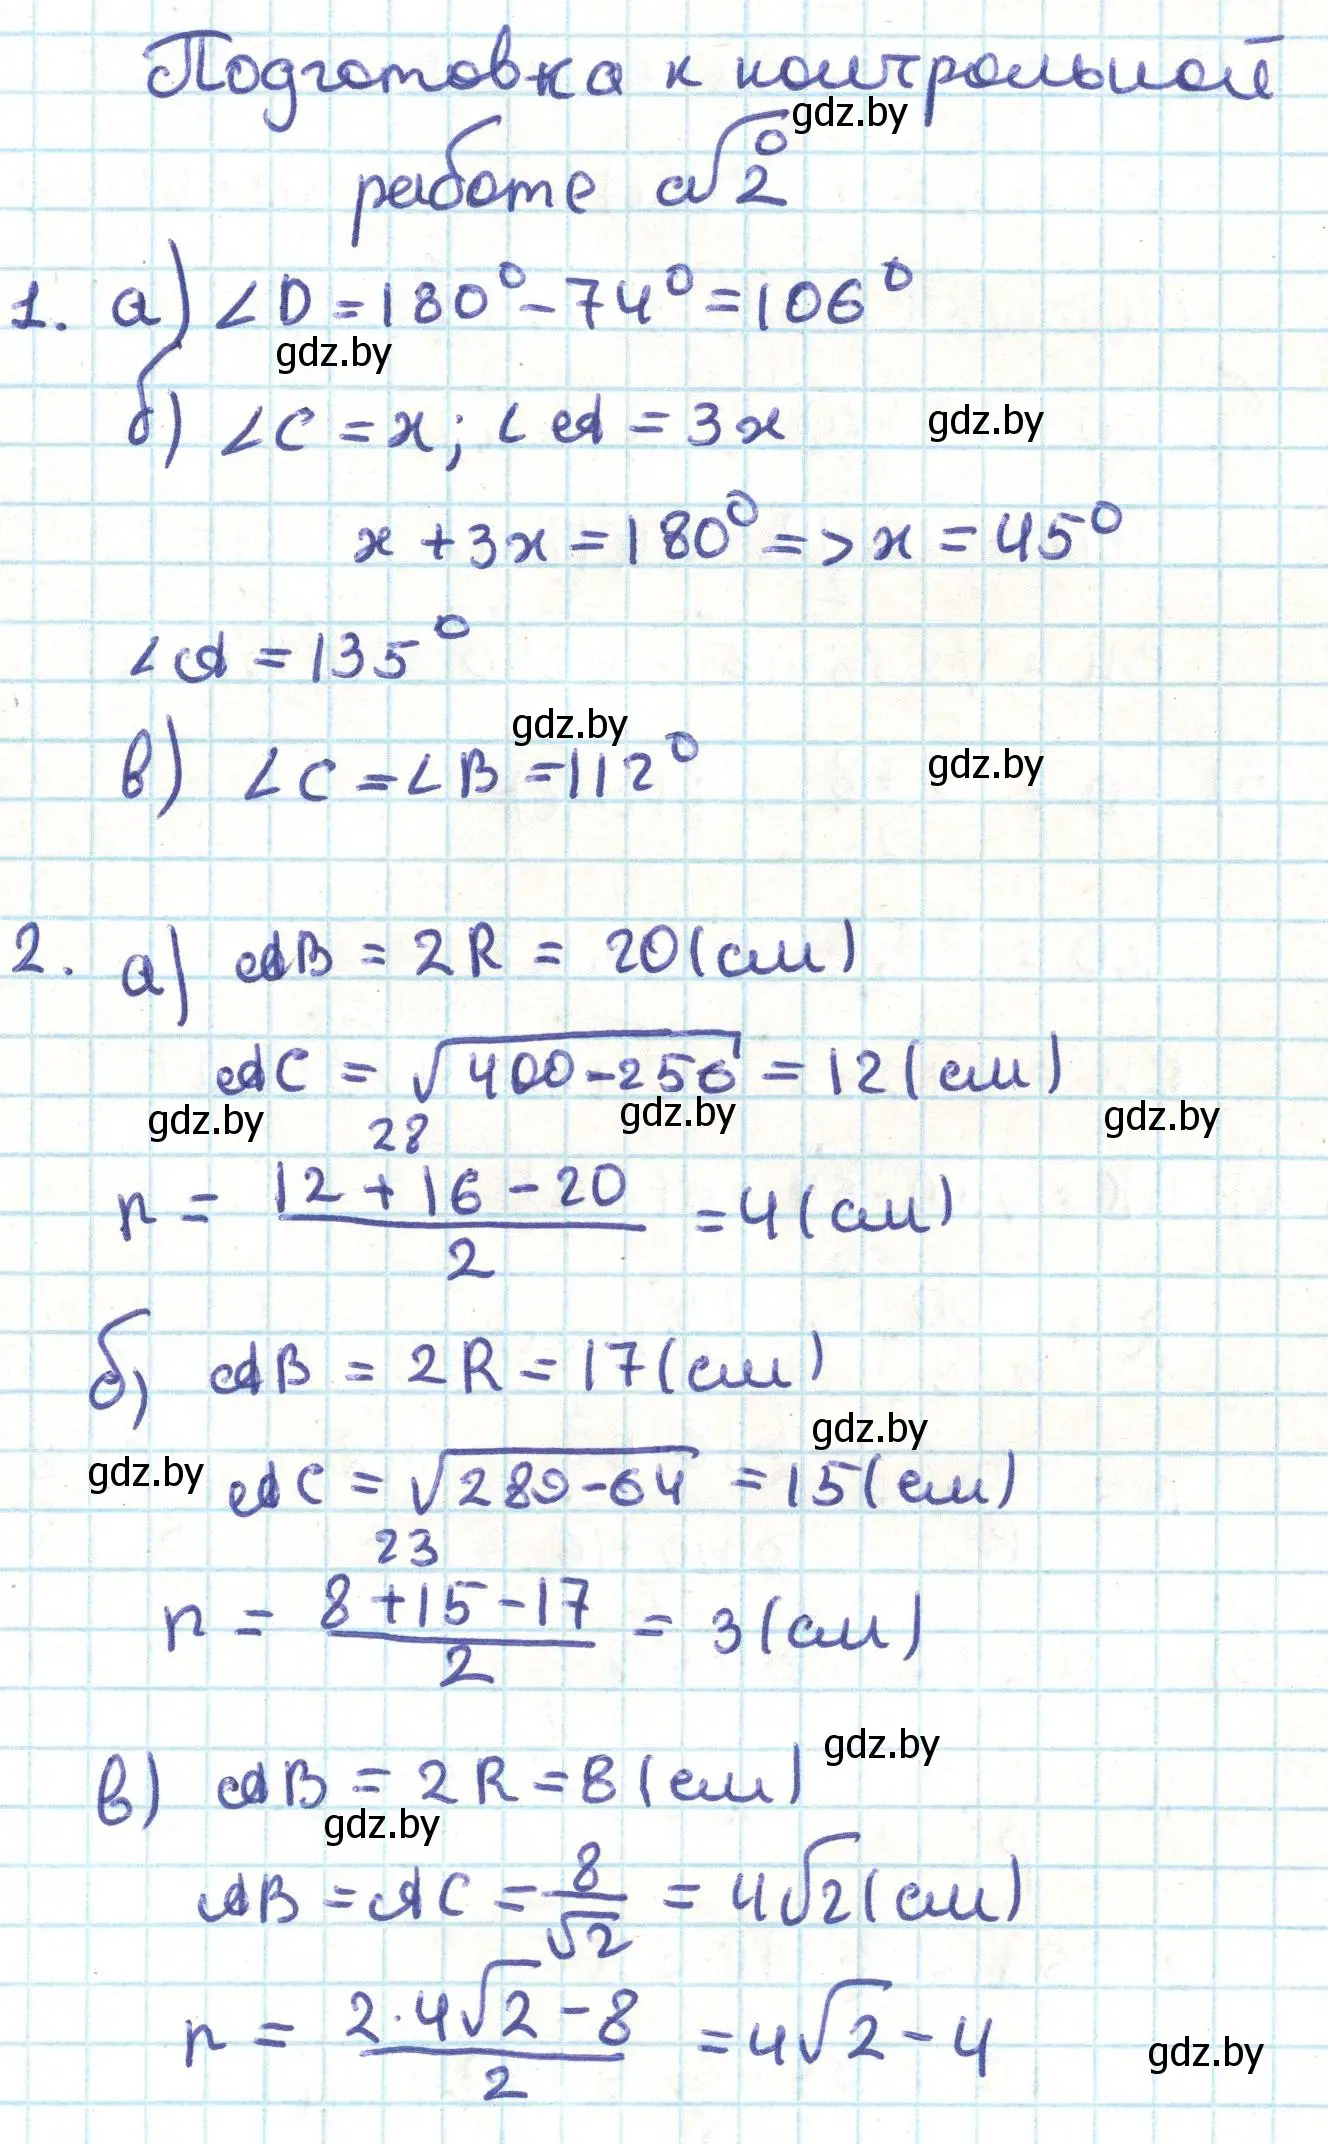 Подготовка к контрольной
gdz.by
работе №2
1. а) ∠D = 180° - 74° = 106°
gdz.by
б) ∠C = x; ∠A = 3x
gdz.by
x + 3x = 180° => x = 45°
∠A = 135°
gdz.by
в) ∠C = ∠B = 112°
gdz.by
2. а) AB = 2R = 20 (см)
AC = √400-256 = 12 (см)
gdz.by gdz.by gdz.by
28
r = (12 + 16 - 20)/2 = 4 (см)
б) AB = 2R = 17 (см)
gdz.by
gdz.by
AC = √289-64 = 15 (см)
23
r = (8 + 15 - 17)/2 = 3 (см)
gdz.by
в) AB = 2R = 8 (см)
gdz.by
AB = AC = 8/√2 = 4√2 (см)
r = (2·4√2 - 8)/2 = 4√2 - 4
gdz.by